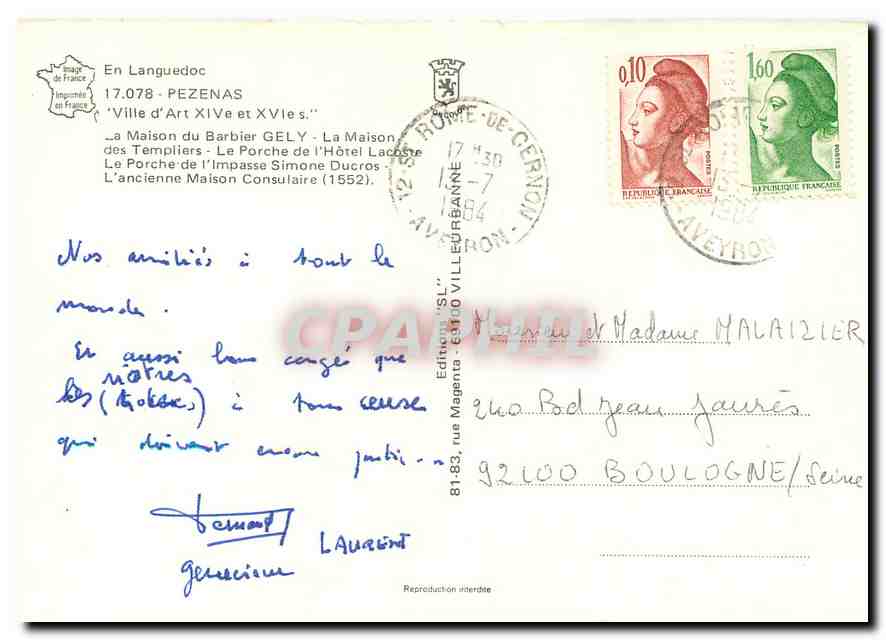 Image
de France
Imprimée
en France
En Languedoc
17.078 - PEZENAS
"Ville d'Art XIVe et XVIe s."
La Maison du Barbier GELY - La Maison
des Templiers - Le Porche de l'Hôtel Lacoste
Le Porche de l'Impasse Simone Ducros -
L'ancienne Maison Consulaire (1552).
Nos amitiés à tout le
monde.
Et aussi bons congés que
nôtres
les à tous ceux
qui doivent encore partir...
Bernard
LAURENT
Geneviève
Editions "SL"
81-83, rue Magenta - 69100 VILLEURBANNE
12 - ST ROME-DE-CERNON
17 H30
1984
AVEYRON
0,10
POSTES
REPUBLIQUE FRANÇAISE
1,60
POSTES
REPUBLIQUE FRANÇAISE
1984
AVEYRON
Monsieur et Madame MALAIZIER
240 Bd Jean Jaurès
92100 BOULOGNE/Seine
Reproduction interdite
CPAPHIL